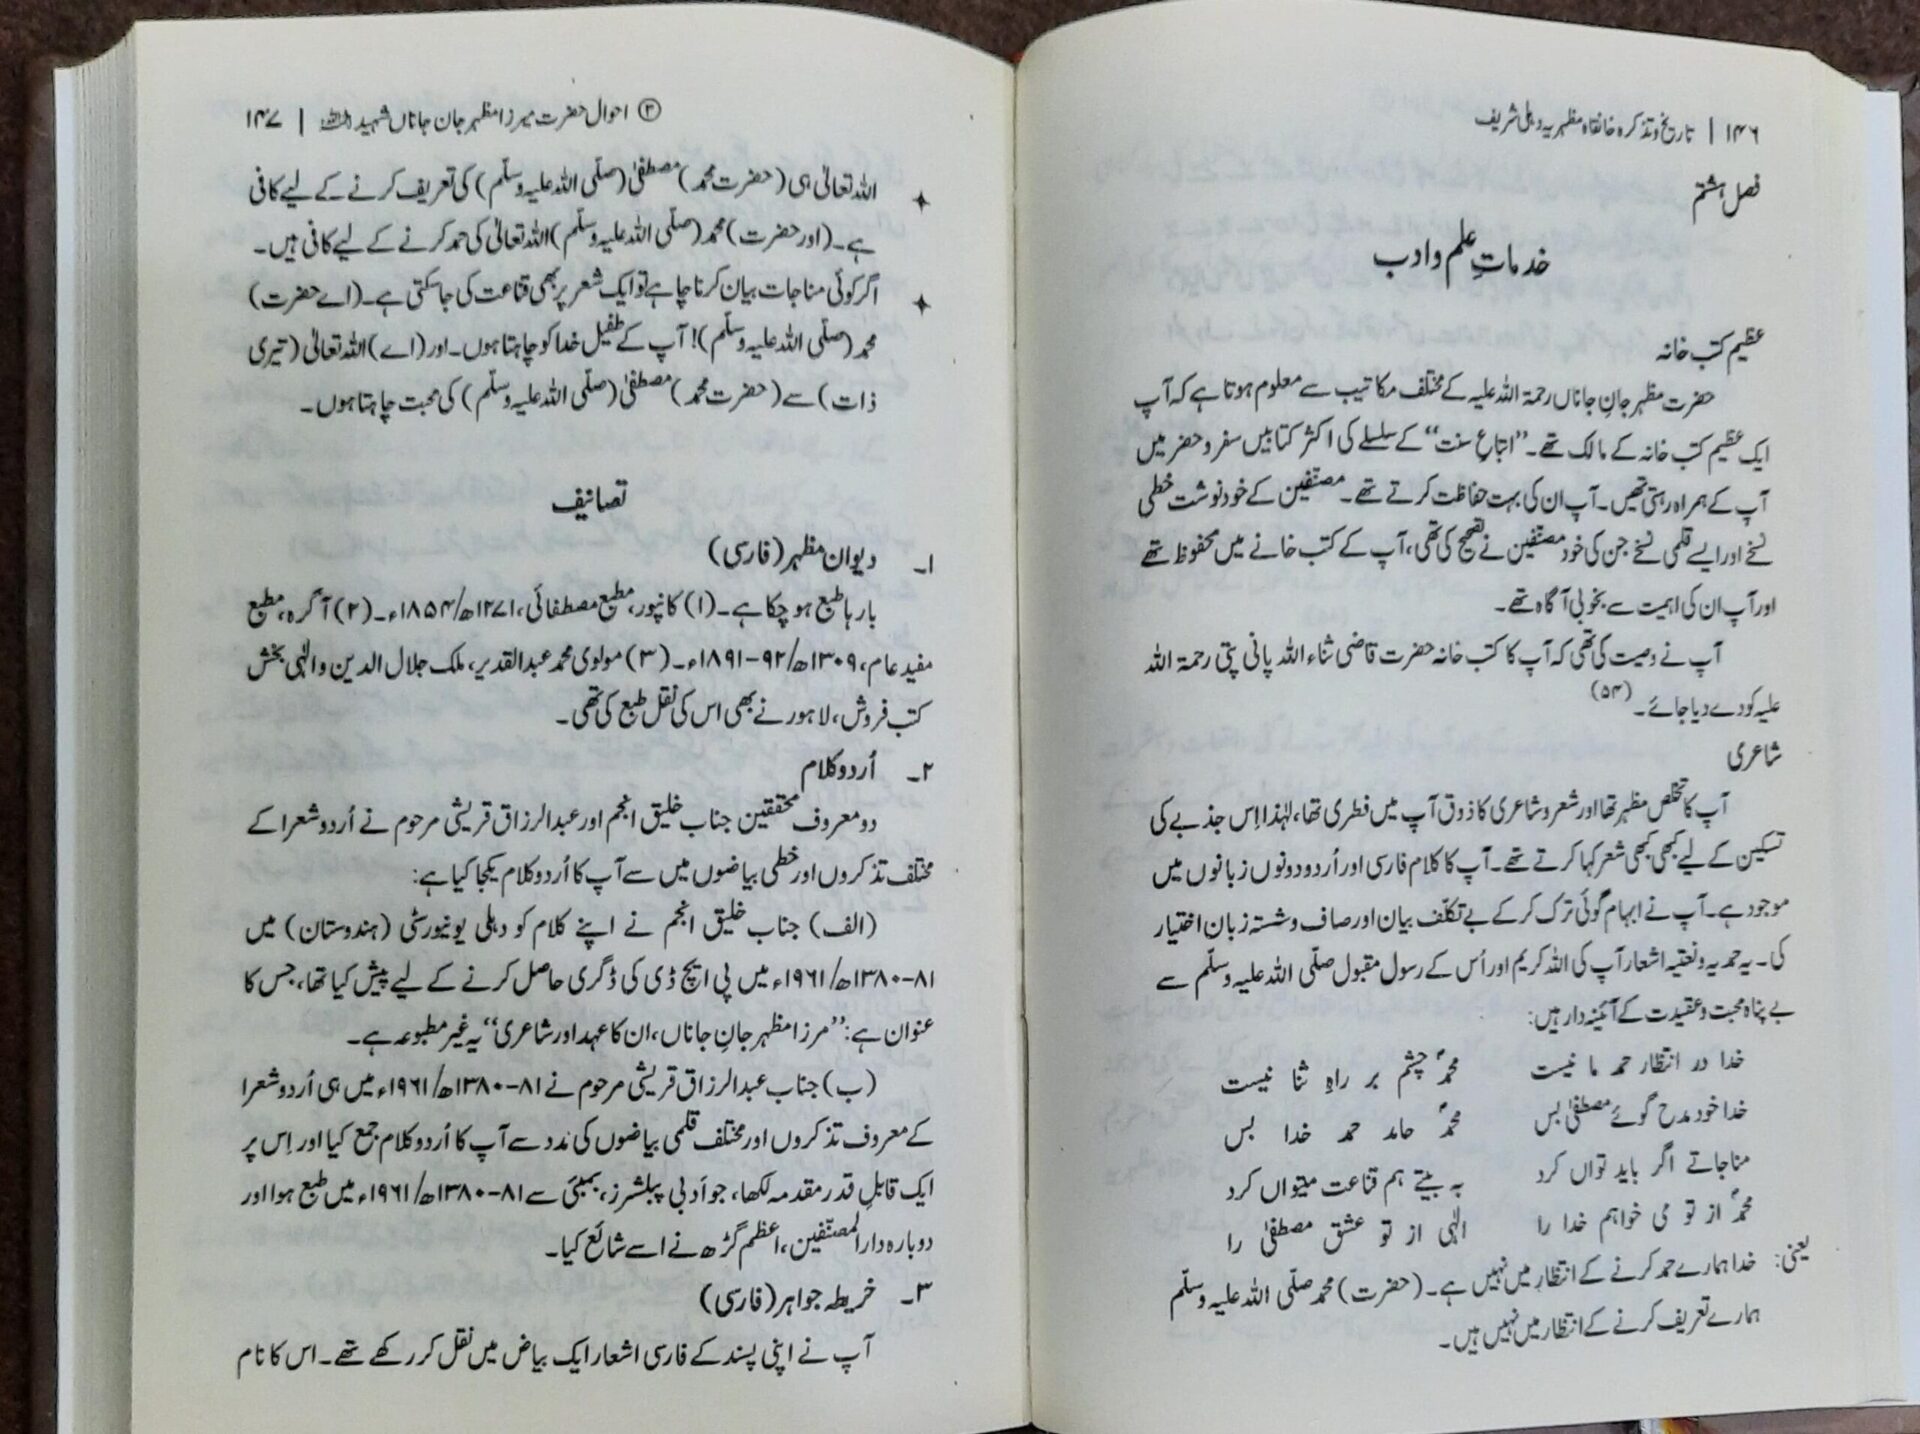 ۱۴۶ | تاریخ و تذکرہ خانقاہ مظہریہ دہلی شریف
فصل ہشتم
خدماتِ علم و ادب
عظیم کتب خانہ
حضرت مظہر جانِ جاناں رحمۃ اللہ علیہ کے مختلف مکاتیب سے معلوم ہوتا ہے کہ آپ
ایک عظیم کتب خانہ کے مالک تھے۔ ”اتباعِ سنت“ کے سلسلے کی اکثر کتابیں سفر و حضر میں
آپ کے ہمراہ رہتی تھیں۔ آپ ان کی بہت حفاظت کرتے تھے۔ مصنّفین کے خودنوشت خطی
نسخے اور ایسے قلمی نسخے جن کی خود مصنّفین نے تصحیح کی تھی، آپ کے کتب خانے میں محفوظ تھے
اور آپ ان کی اہمیت سے بخوبی آگاہ تھے۔
آپ نے وصیت کی تھی کہ آپ کا کتب خانہ حضرت قاضی ثناء اللہ پانی پتی رحمۃ اللہ
علیہ کو دے دیا جائے۔ (۵۴)
شاعری
آپ کا تخلص مظہر تھا اور شعر و شاعری کا ذوق آپ میں فطری تھا، لہٰذا اِس جذبے کی
تسکین کے لیے کبھی کبھی شعر کہا کرتے تھے۔ آپ کا کلام فارسی اور اُردو دونوں زبانوں میں
موجود ہے۔ آپ نے ابہام گوئی ترک کر کے بے تکلّف بیان اور صاف و شستہ زبان اختیار
کی۔ یہ حمدیہ و نعتیہ اشعار آپ کی اللہ کریم اور اُس کے رسول مقبول صلّی اللہ علیہ وسلّم سے
بے پناہ محبت و عقیدت کے آئینہ دار ہیں:
خدا در انتظار حمد ما نیست محمدؐ چشم بر راہِ ثنا نیست
خدا خود مدح گوئے مصطفیٰ بس محمدؐ حامد حمد خدا بس
مناجاتے اگر باید تواں کرد بہ بیتے ہم قناعت میتواں کرد
محمدؐ از تو می خواہم خدا را الٰہی از تو عشق مصطفیٰ را
یعنی: خدا ہمارے حمد کرنے کے انتظار میں نہیں ہے۔ (حضرت) محمد صلّی اللہ علیہ وسلّم
ہمارے تعریف کرنے کے انتظار میں نہیں ہیں۔
③ احوال حضرت میرزا مظہر جان جاناں شہید | ۱۴۷
✦ اللہ تعالیٰ ہی (حضرت محمد) مصطفیٰ (صلّی اللہ علیہ وسلّم) کی تعریف کرنے کے لیے کافی
ہے۔ (اور حضرت) محمد (صلّی اللہ علیہ وسلّم) اللہ تعالیٰ کی حمد کرنے کے لیے کافی ہیں۔
✦ اگر کوئی مناجات بیان کرنا چاہے تو ایک شعر پر بھی قناعت کی جا سکتی ہے۔ (اے حضرت)
محمد (صلّی اللہ علیہ وسلّم)! آپ کے طفیل خدا کو چاہتا ہوں۔ اور (اے) اللہ تعالیٰ (تیری
ذات) سے (حضرت محمد) مصطفیٰ (صلّی اللہ علیہ وسلّم) کی محبت چاہتا ہوں۔
تصانیف
۱۔ دیوان مظہر (فارسی)
بارہا طبع ہو چکا ہے۔ (۱) کانپور، مطبع مصطفائی، ۱۲۷۱ھ/۱۸۵۴ء۔ (۲) آگرہ، مطبع
مفید عام، ۱۳۰۹ھ/۹۲-۱۸۹۱ء۔ (۳) مولوی محمد عبدالقدیر، ملک جلال الدین و الٰہی بخش
کتب فروش، لاہور نے بھی اس کی نقل طبع کی تھی۔
۲۔ اُردو کلام
دو معروف محققین جناب خلیق انجم اور عبدالرزاق قریشی مرحوم نے اُردو شعرا کے
مختلف تذکروں اور خطی بیاضوں میں سے آپ کا اُردو کلام یکجا کیا ہے:
(الف) جناب خلیق انجم نے اپنے کلام کو دہلی یونیورسٹی (ہندوستان) میں
۸۱-۱۳۸۰ھ/۱۹۶۱ء میں پی ایچ ڈی کی ڈگری حاصل کرنے کے لیے پیش کیا تھا، جس کا
عنوان ہے: ”مرزا مظہر جانِ جاناں، ان کا عہد اور شاعری“ یہ غیر مطبوعہ ہے۔
(ب) جناب عبدالرزاق قریشی مرحوم نے ۸۱-۱۳۸۰ھ/۱۹۶۱ء میں ہی اُردو شعرا
کے معروف تذکروں اور مختلف قلمی بیاضوں کی مدد سے آپ کا اُردو کلام جمع کیا اور اِس پر
ایک قابلِ قدر مقدمہ لکھا، جو ادبی پبلشرز، بمبئی سے ۸۱-۱۳۸۰ھ/۱۹۶۱ء میں طبع ہوا اور
دوبارہ دارالمصنّفین، اعظم گڑھ نے اسے شائع کیا۔
۳۔ خریطہ جواہر (فارسی)
آپ نے اپنی پسند کے فارسی اشعار ایک بیاض میں نقل کر رکھے تھے۔ اس کا نام